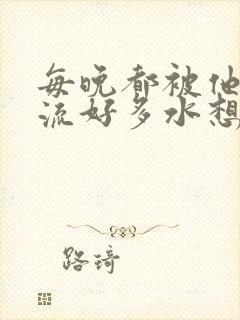 每晚都被他
流好多水想
路琦